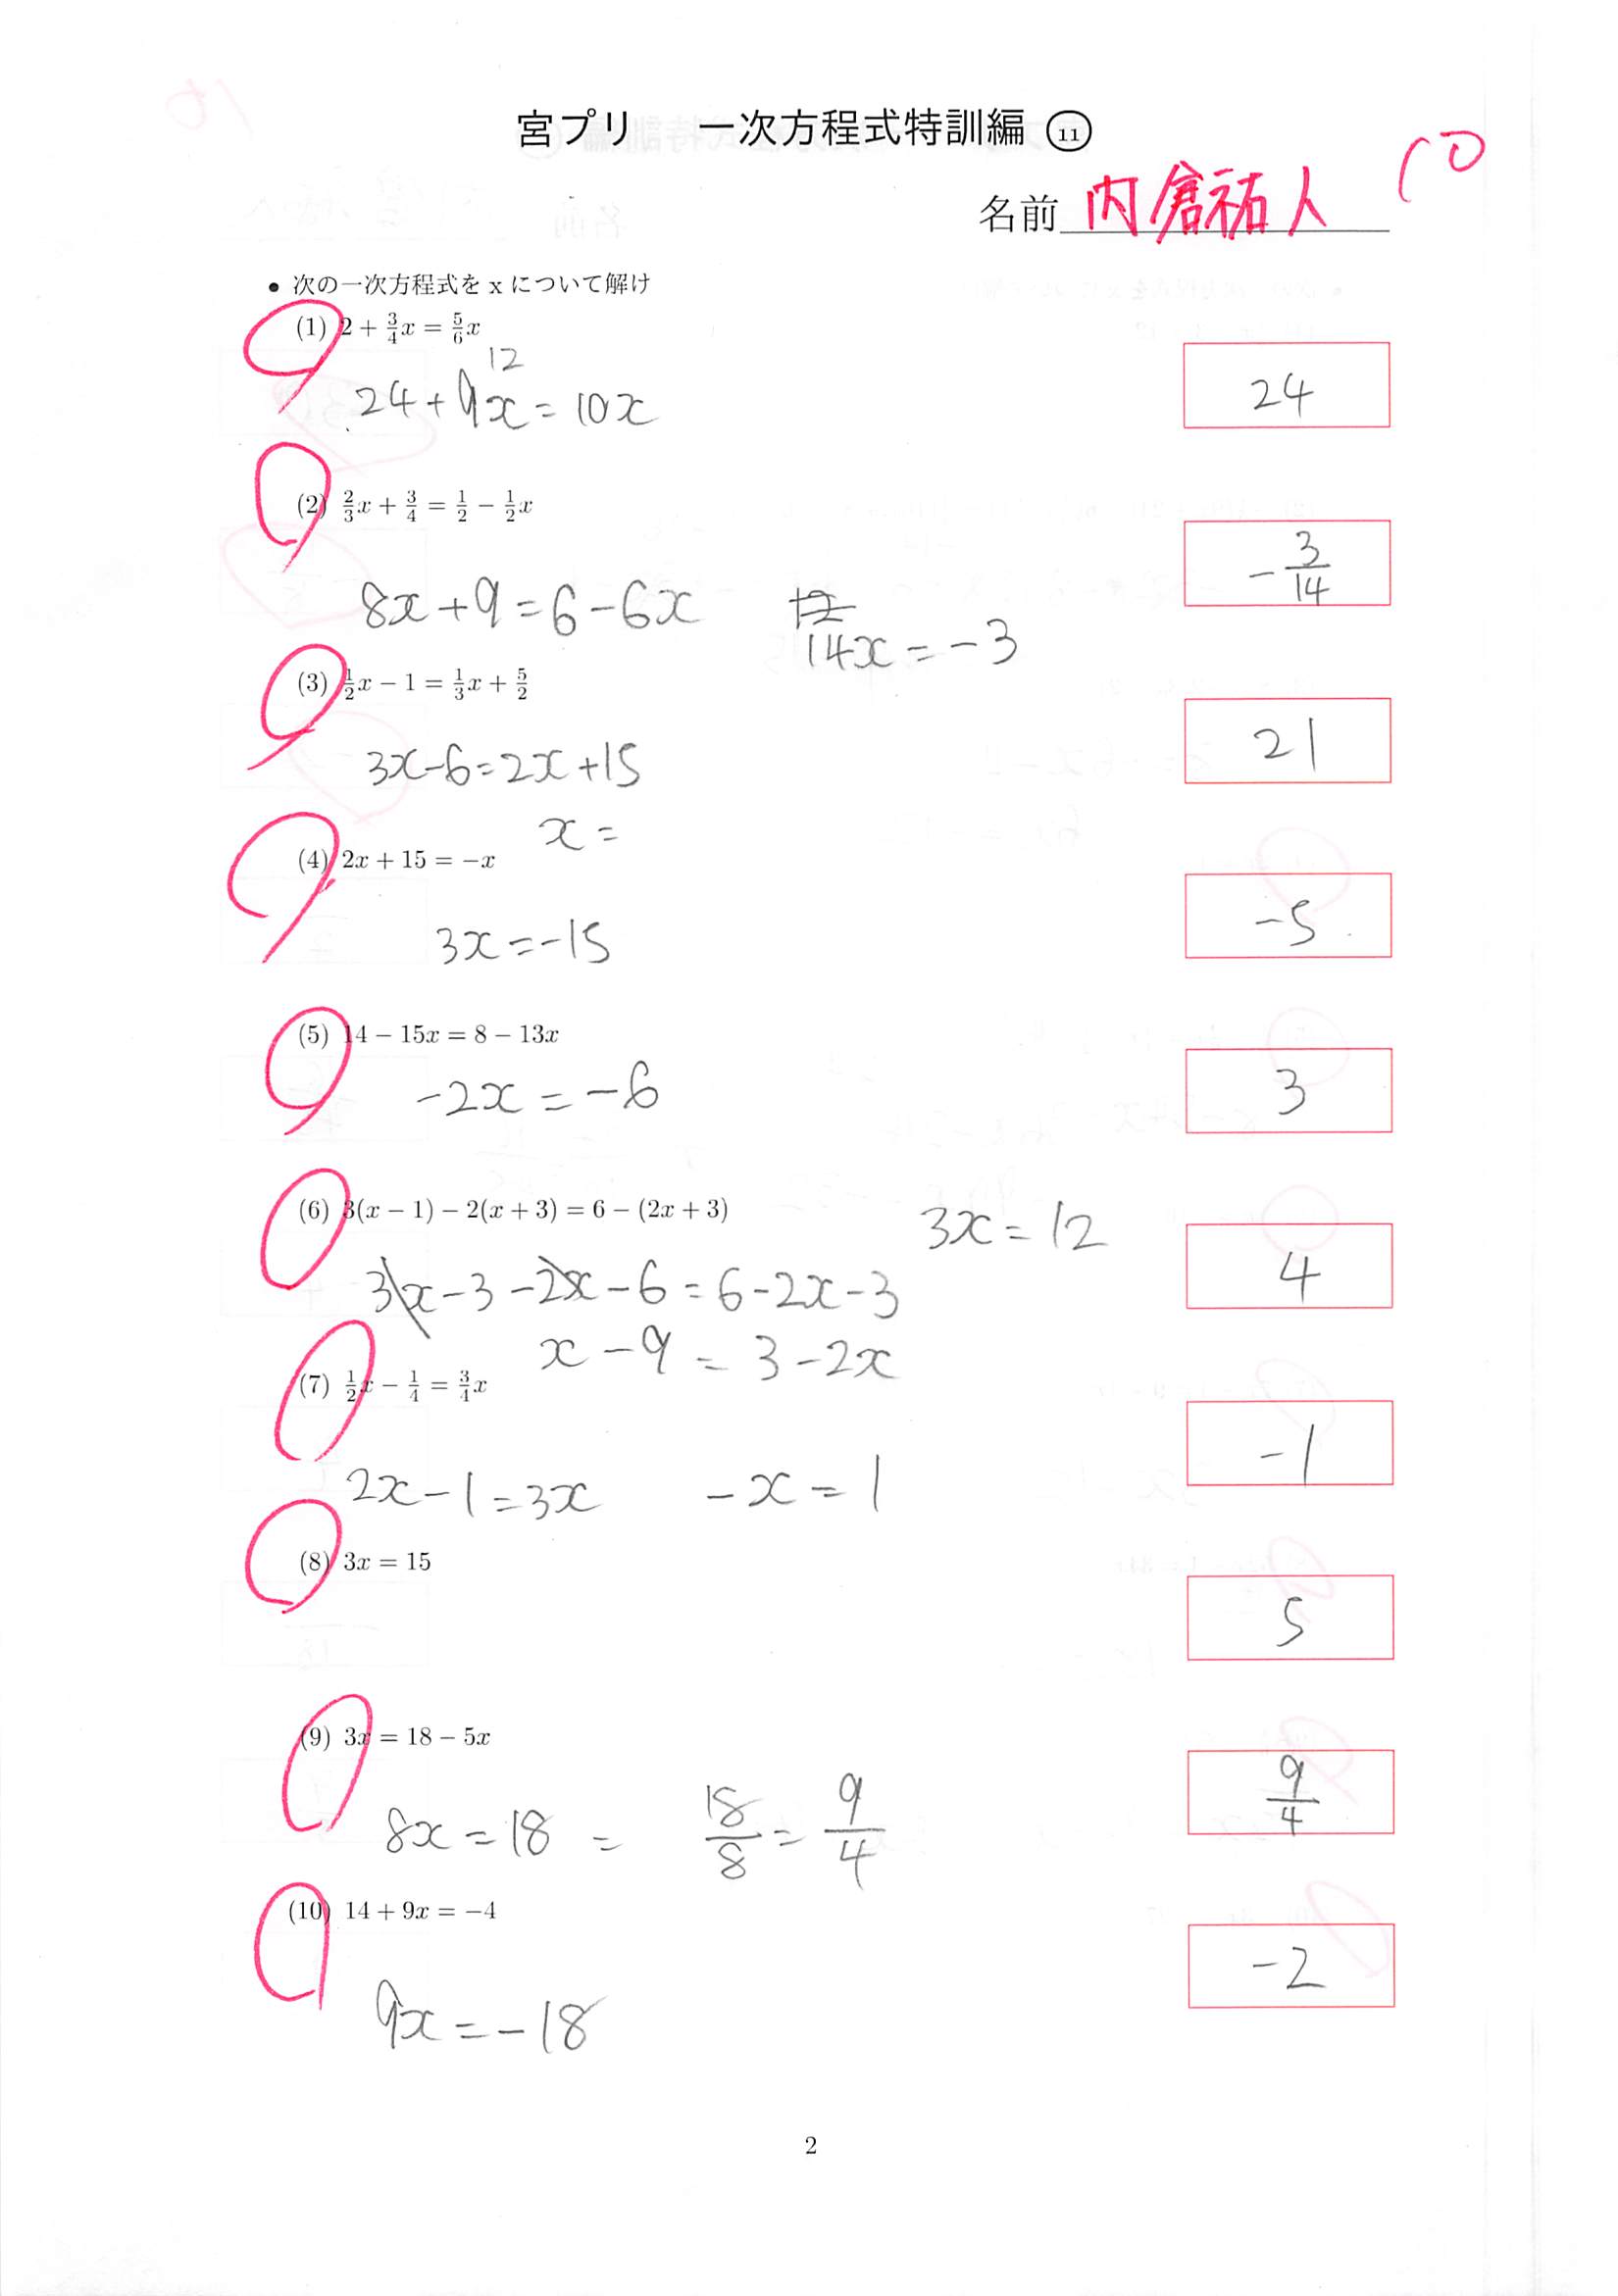 宮プリ 一次方程式特訓編 ⑪
10
名前 内倉祐人
• 次の一次方程式を x について解け
(1) 2 + 3/4 x = 5/6 x
12
24 + 9x = 10x
24
(2) 2/3 x + 3/4 = 1/2 − 1/2 x
8x + 9 = 6 − 6x
14x = −3
−3/14
(3) 1/2 x − 1 = 1/3 x + 5/2
3x − 6 = 2x + 15
x =
21
(4) 2x + 15 = −x
3x = −15
−5
(5) 14 − 15x = 8 − 13x
−2x = −6
3
(6) 3(x − 1) − 2(x + 3) = 6 − (2x + 3)
3x = 12
3x − 3 − 2x − 6 = 6 − 2x − 3
x − 9 = 3 − 2x
4
(7) 1/2 x − 1/4 = 3/4 x
2x − 1 = 3x −x = 1
−1
(8) 3x = 15
5
(9) 3x = 18 − 5x
8x = 18 = 18/8 = 9/4
9/4
(10) 14 + 9x = −4
9x = −18
−2
2